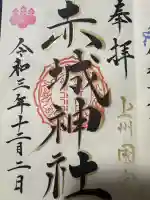 奉拝
上州
赤城神社
令和三年十二月二日